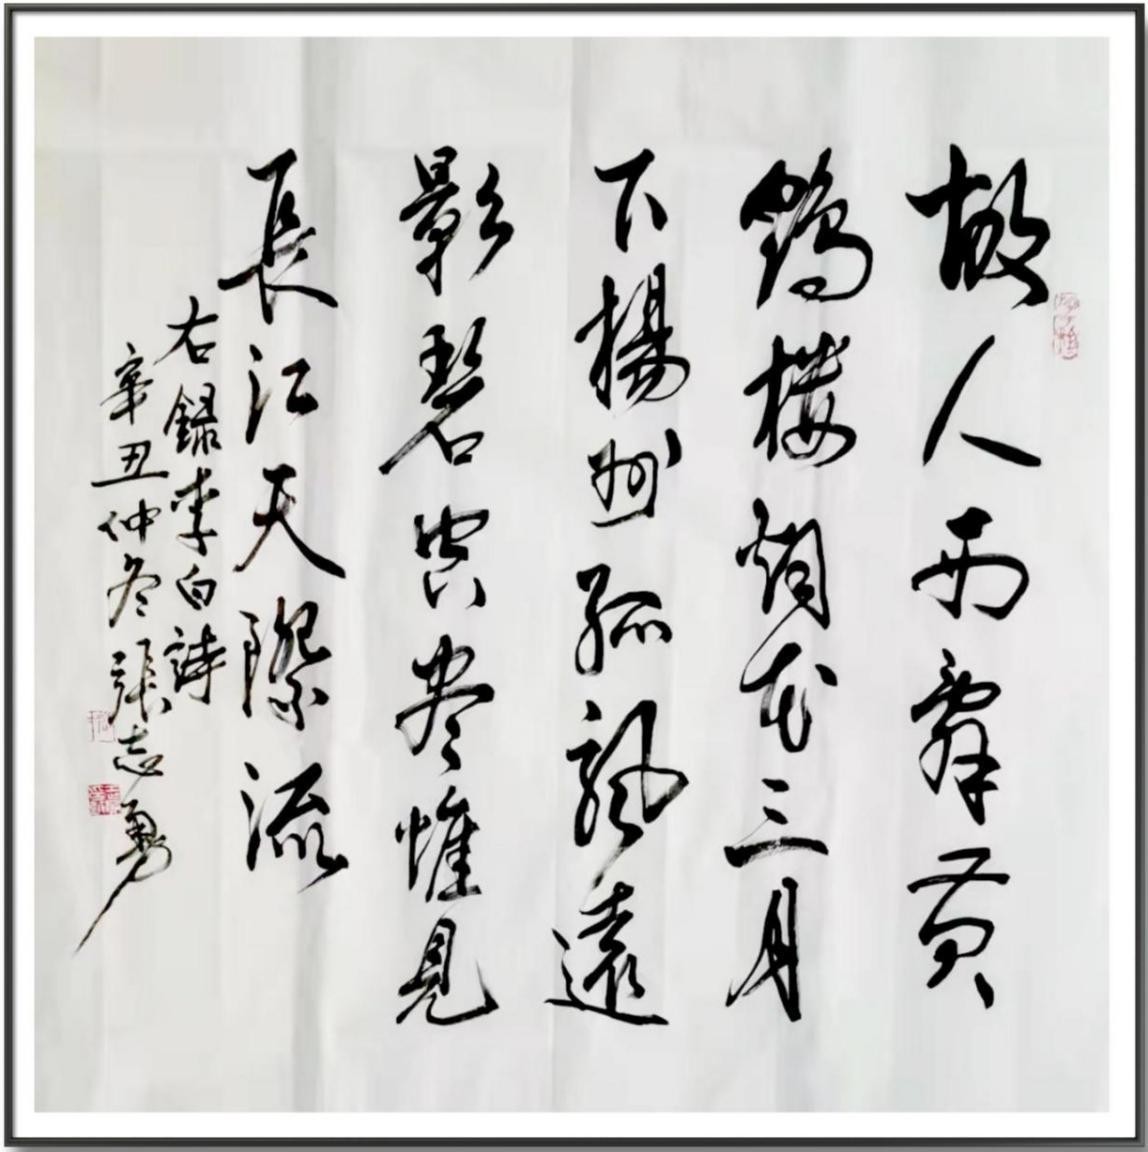 故人西辭黄
鶴樓烟花三月
下揚州孤颿遠
影碧空尽惟見
長江天際流
右録李白詩
辛丑仲冬張志勇